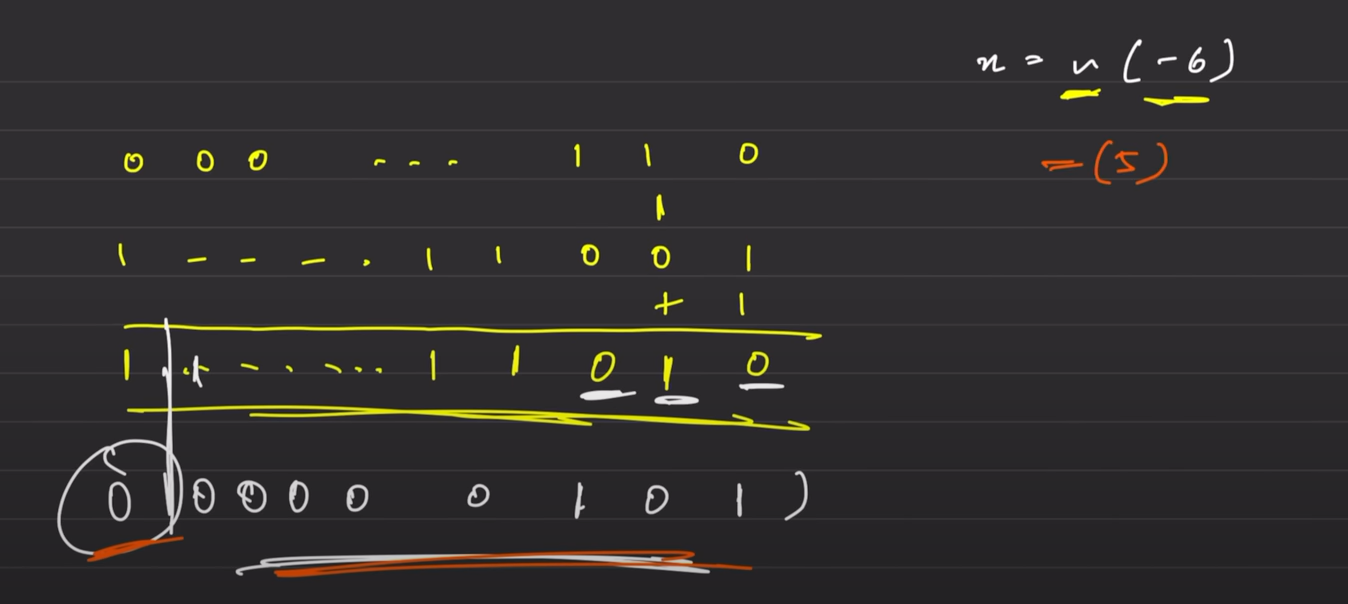 x = ~ (-6)
0 0 0 - - - 1 1 0
= (5)
1
1 - - - . 1 1 0 0 1
+ 1
1 1 - . - ... 1 1 0 1 0
0 0 0 0 0 0 1 0 1 )